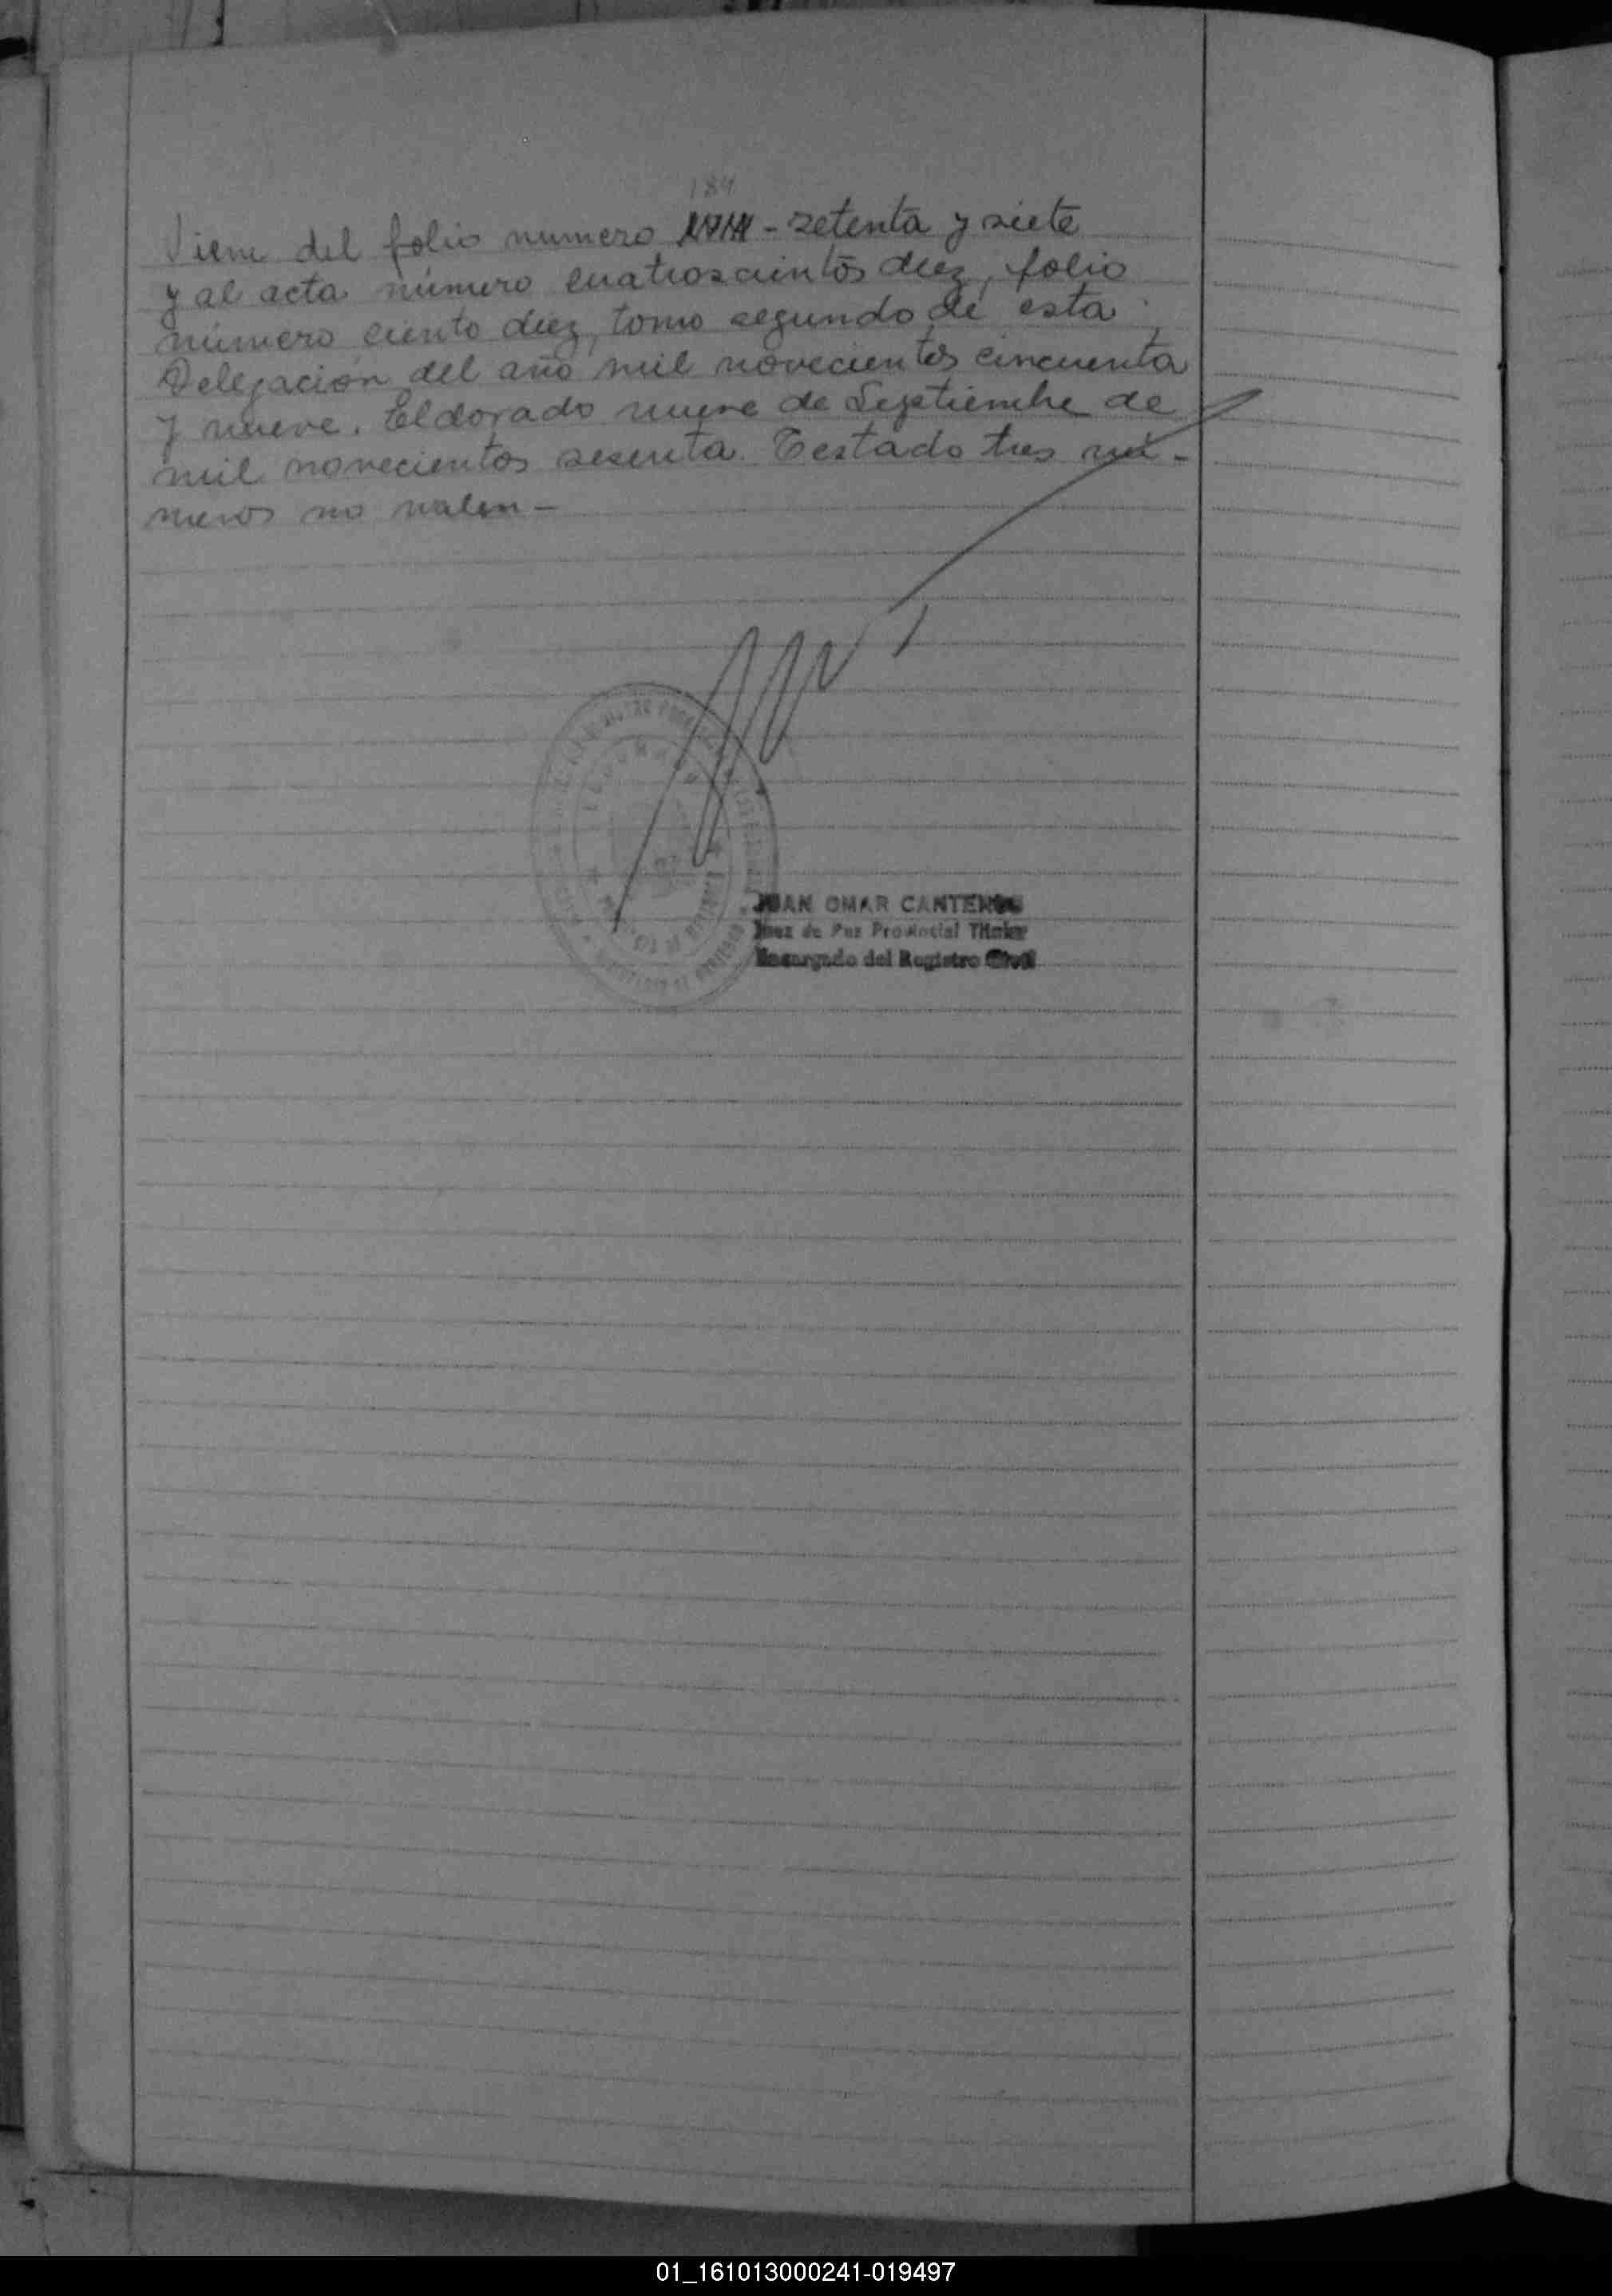 184
Viene del folio numero - setenta y siete
y al acta número cuatroscientos diez, folio
número ciento diez, tomo segundo de esta
Delegación del año mil novecientos cincuenta
y nueve. Eldorado nueve de Septiembre de
mil novecientos sesenta. Testado tres nú-
meros no valen -
JUAN OMAR
Juez de Paz Provincial Titular
Encargado del Registro Civil
01_161013000241-019497